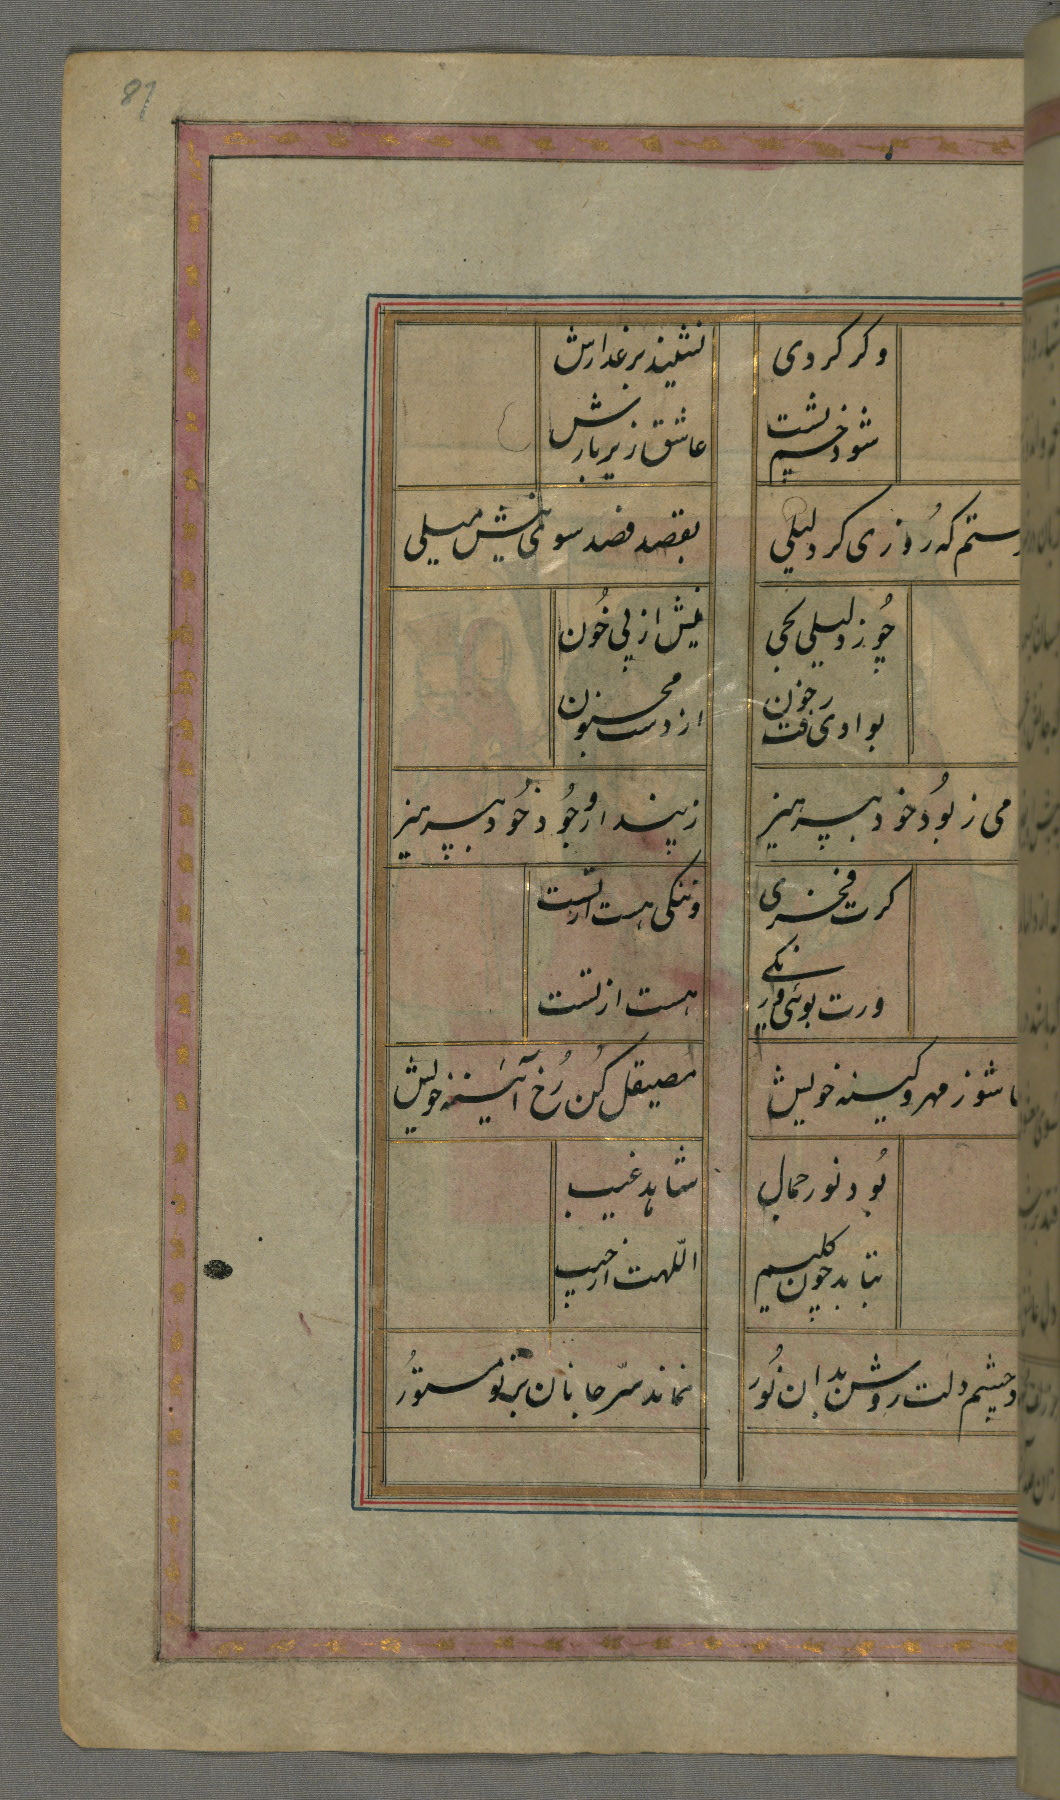 81
وگر کردی
نشیند بر عذارش
شود خسم پشت
عاشق زیر بارش
ستم که روزی کرد لیلی
بقصد فصد سوی نیش میلی
چو زد لیلی بحی
نیش از پی خون
بوادی رفت خون
از دست مجنون
می ز بود خود بپرهیز
ز پندار وجود خود بپرهیز
گرت فخری
و ننگی هست از تست
ورت بوئی و رنگی
هست از تست
شو ز مهر و کینه خویش
مصیقل کن رخ آئینه خویش
بود نور جمال
شاهد غیب
بتابد چون کلیم
اللهت از جیب
چشم دلت روشن بدان نور
نماند سر جانان بر تو مستور